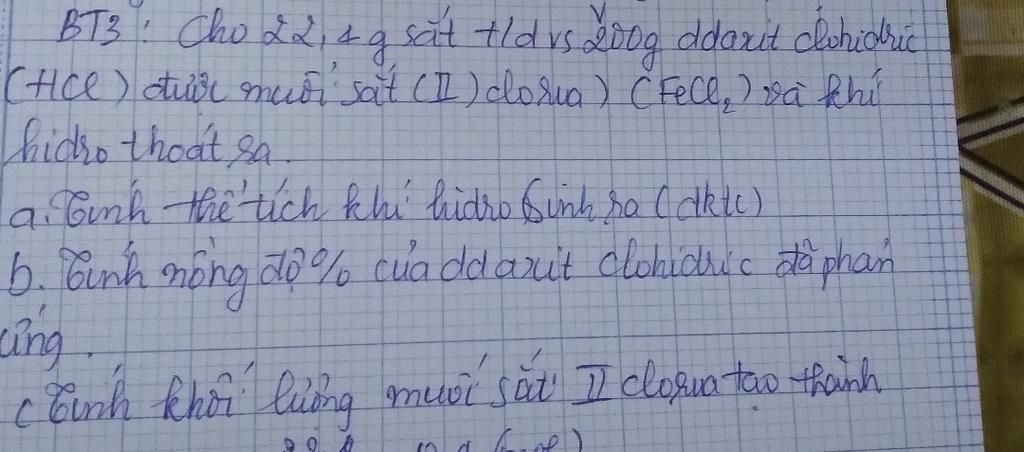 BT3: Cho 22,4 g sắt t/d vs 200g ddaxit clohidric
(HCl) được muối sắt (II) clorua) (FeCl₂) và khí
hidro thoát ra.
a. Tính thể tích khí hidro sinh ra (đktc)
b. Tính nồng độ % của ddaxit clohidric đã phản
ứng.
c Tính khối lượng muối sắt II clorua tạo thành